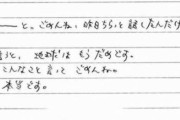 ーと。ごめんね、昨日ちらっと話したんだけ
うと、地球は もう だめです。
こんなこと 言って ごめんね。
本当です。